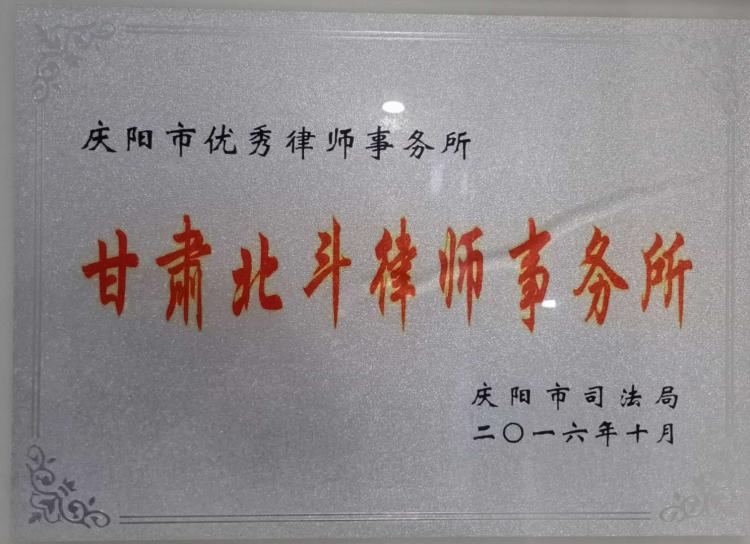 庆阳市优秀律师事务所
甘肃北斗律师事务所
庆阳市司法局
二〇一六年十月